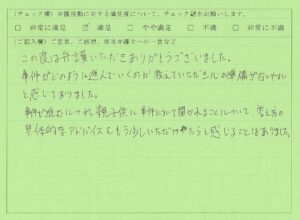 （チェック欄）弁護活動に対する満足度について、チェック☑をお願いします。
□ 非常に満足 ☑ 満足 □ やや満足 □ 不満 □ 非常に不満
（ご記入欄）ご意見、ご感想、担当弁護士への一言など
この度は弁護いただきありがとうございました。
事件がどのように進んでいくのか教えていただき心の準備が行いやすい
と感じておりました。
事件が進むにつれ、親子供に事件について聞かれることについて、答え方の
具体的なアドバイスをもう少しいただけたらと感じることはありました。